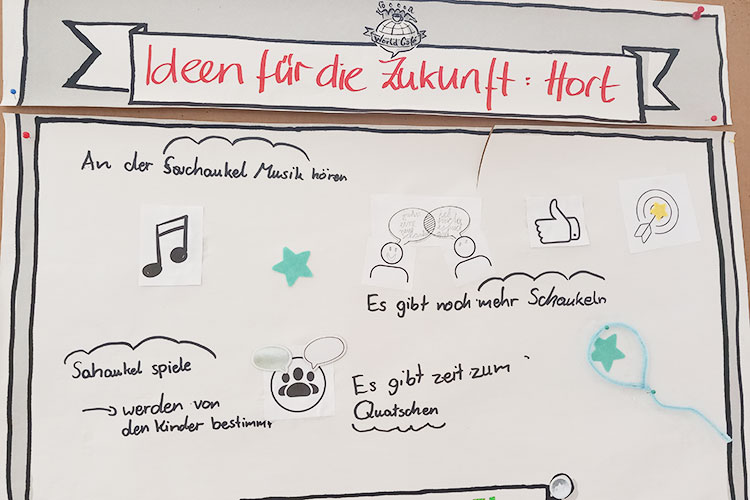 World Café
Ideen für die Zukunft: Hort
An der Schaukel Musik hören
Es gibt noch mehr Schaukeln
Schaukel spiele
→ werden von
den Kinder bestimmt
Es gibt zeit zum
Quatschen